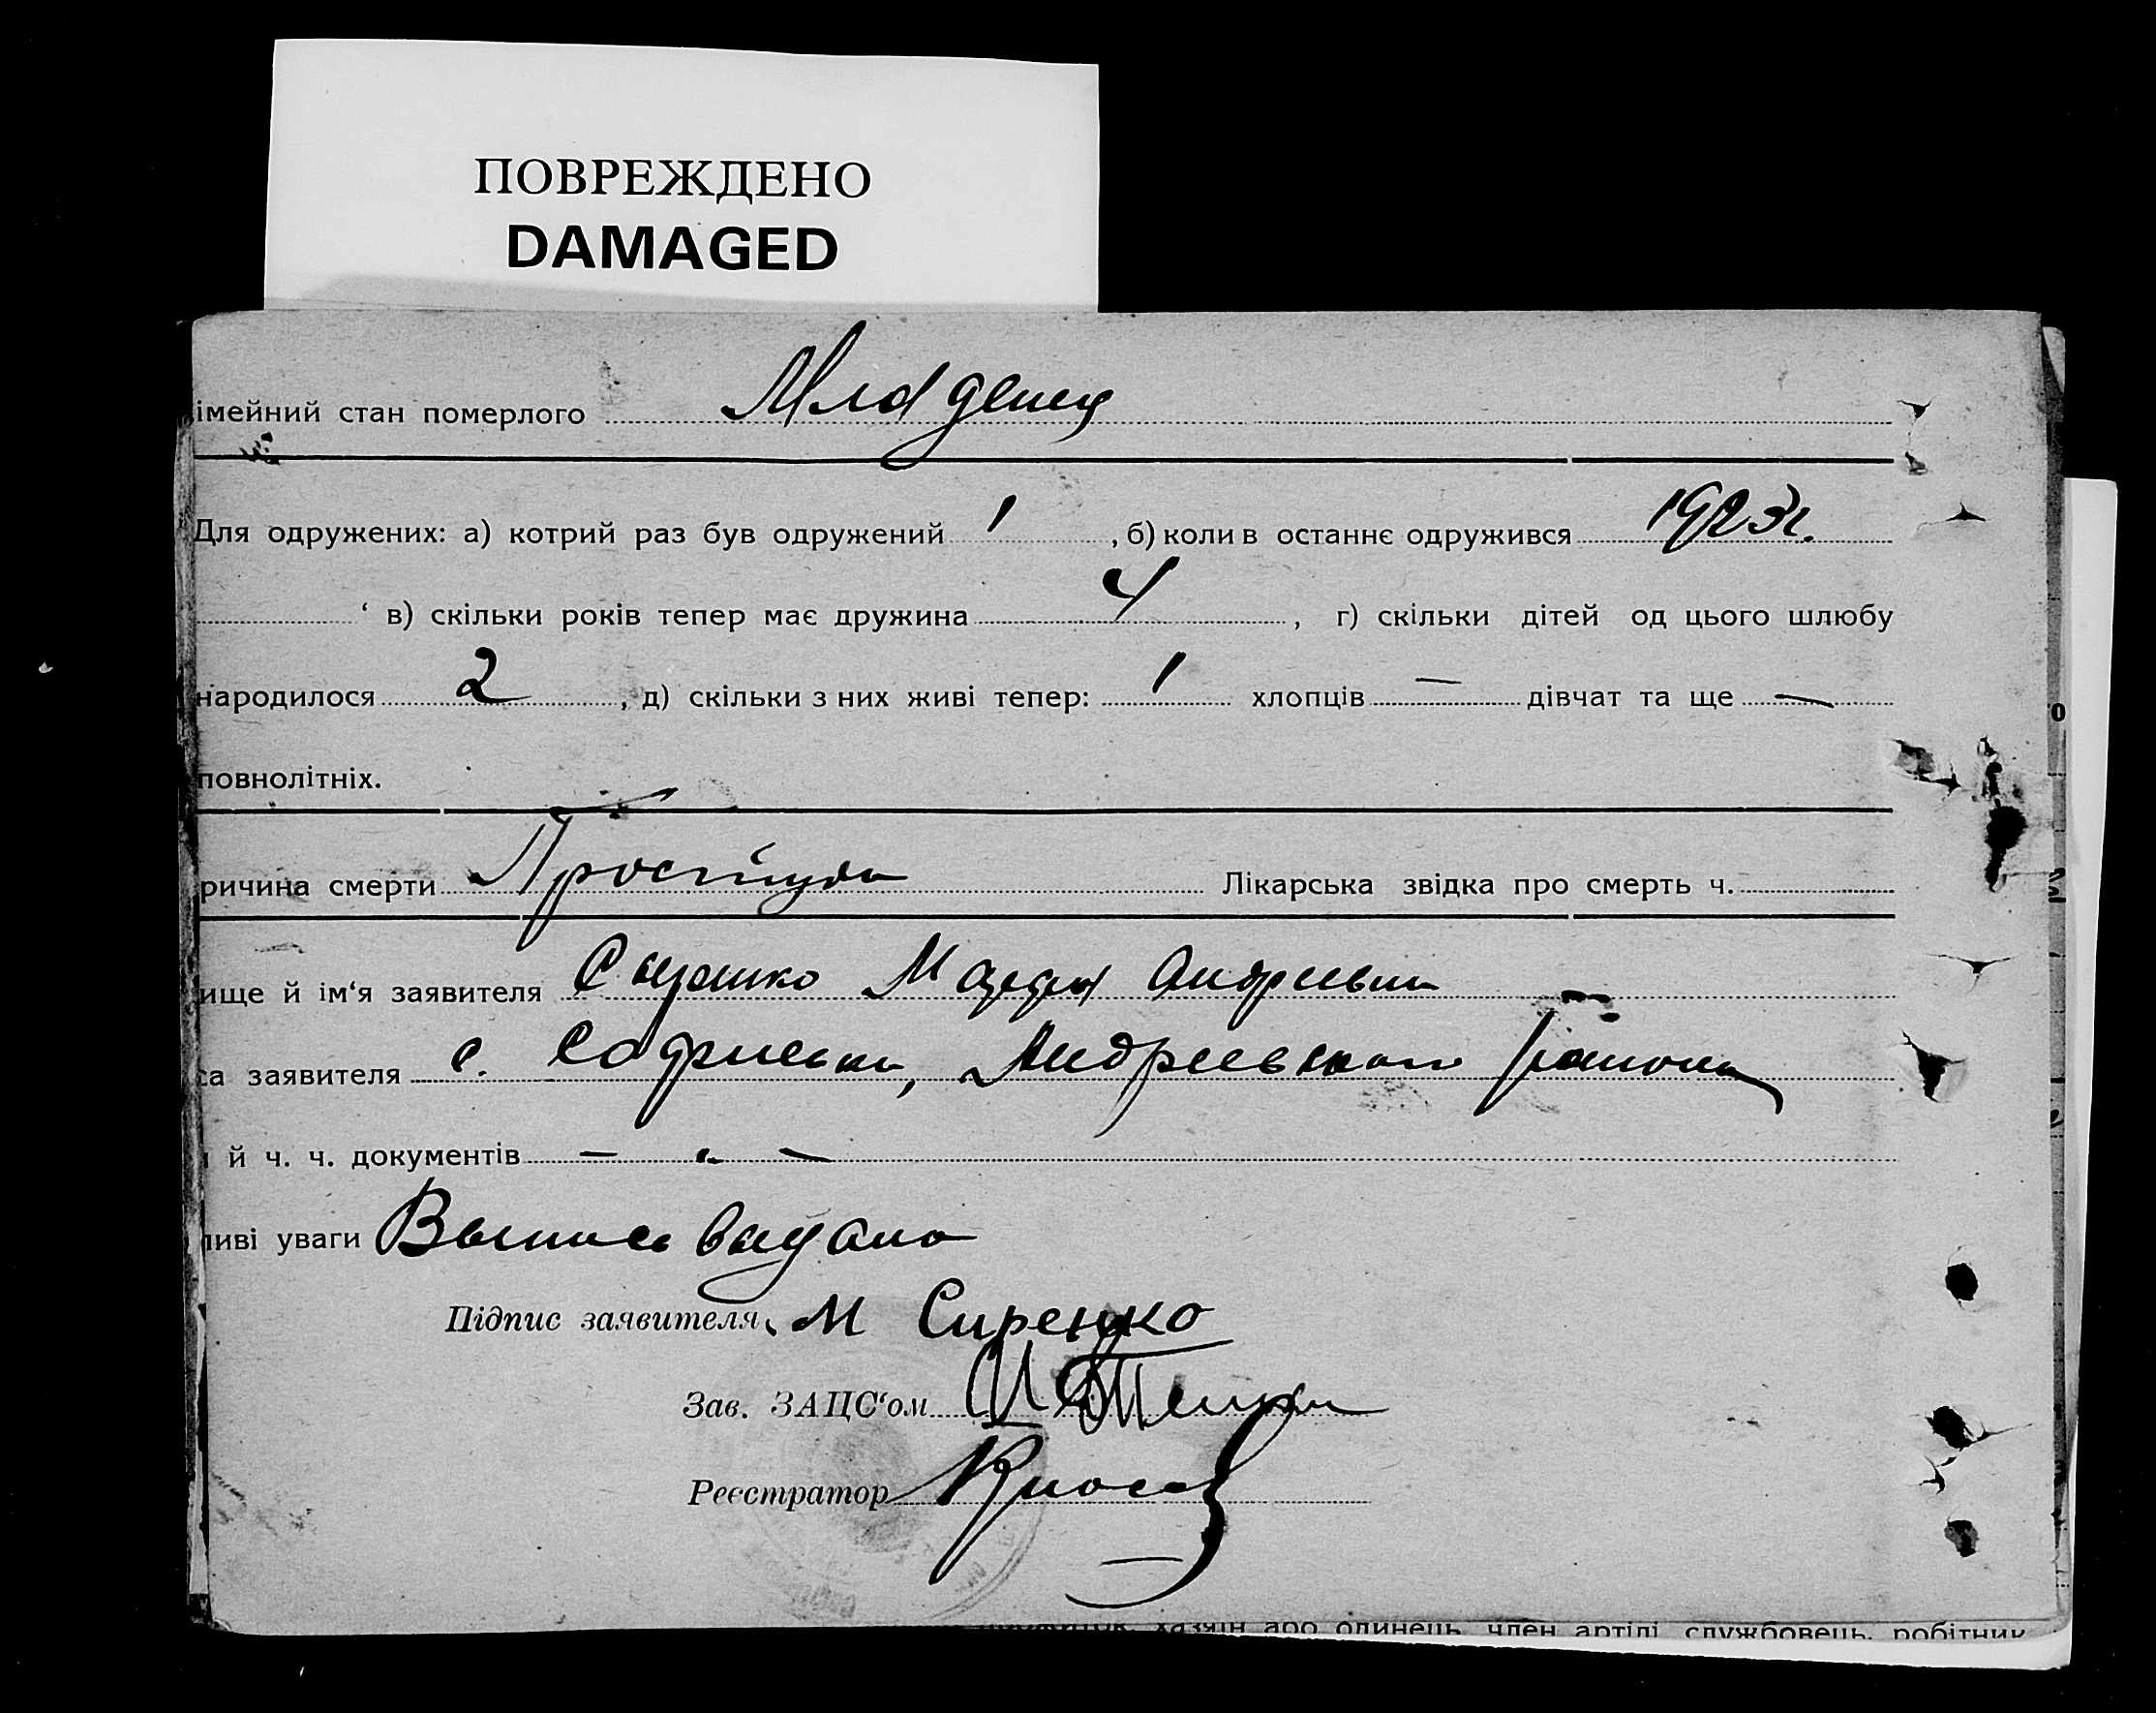 ПОВРЕЖДЕНО
DAMAGED
імейний стан померлого Младенец
Для одружених: а) котрий раз був одружений 1, б) коли в останнє одружився 1923г.
в) скільки років тепер має дружина 4, г) скільки дітей од цього шлюбу
народилося 2, д) скільки з них живі тепер: 1 хлопців — дівчат та ще —
повнолітніх.
ричина смерти Простуда Лікарська звідка про смерть ч.
ище й ім‘я заявителя
са заявителя с. Андреевского района
й ч. ч. документів — „ —
ливі уваги Выпись выдана
Підпис заявителя М Сиренко
Зав. ЗАЦС‘ом
Реєстратор
хазяін або одинець, член артілі, службовець, робітник